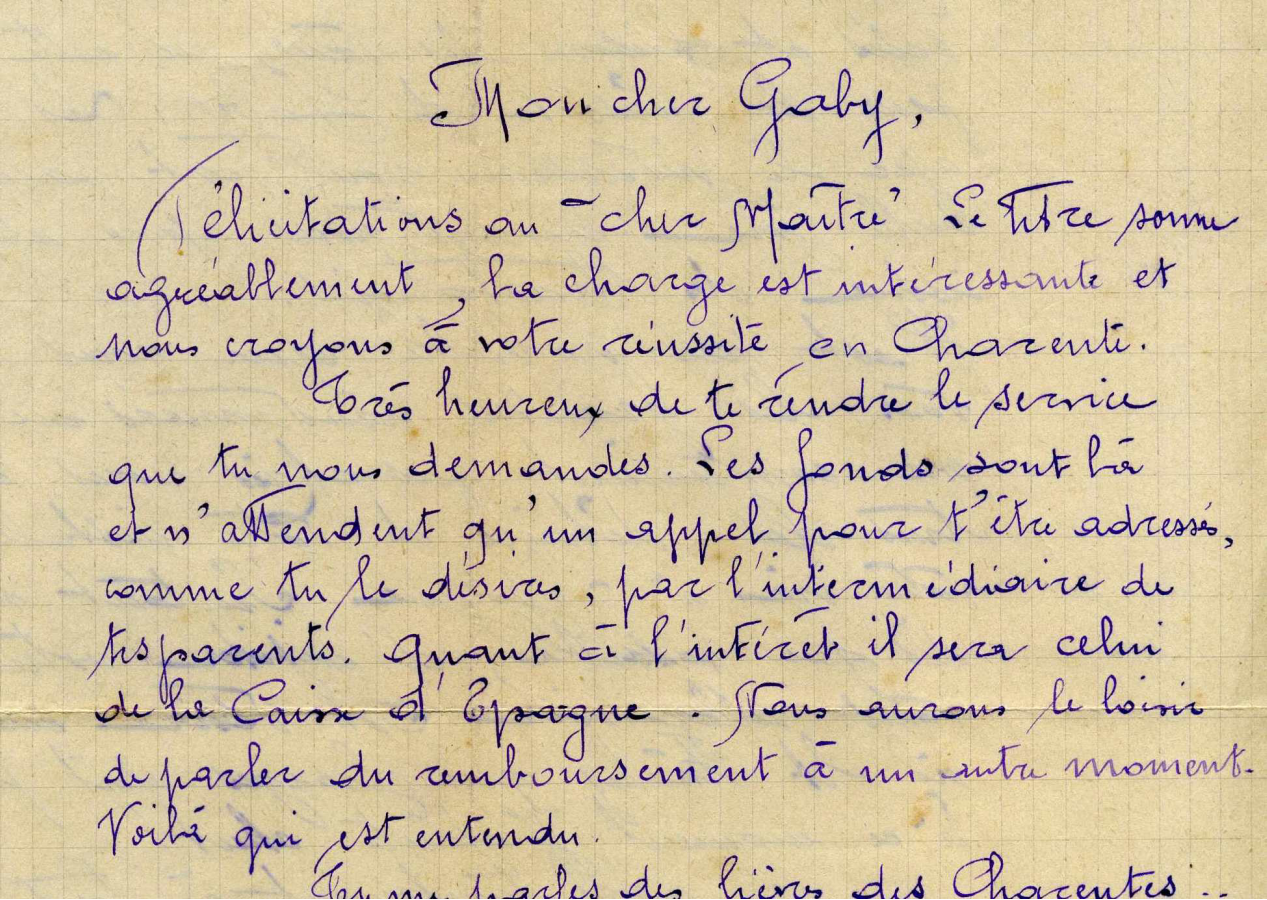 Mon cher Gaby,
Félicitations au "cher Maître" Le titre sonne
agréablement, la charge est intéressante et
nous croyons à votre réussite en Charente.
Très heureux de te rendre le service
que tu nous demandes. Les fonds sont là
et n'attendent qu'un appel pour t'être adressés,
comme tu le désires, par l'intermédiaire de
tes parents. Quant à l'intérêt il sera celui
de la Caisse d'Epargne. Nous aurons le loisir
de parler du remboursement à un autre moment.
Voilà qui est entendu.
Tu me parles des lièvres des Charentes..